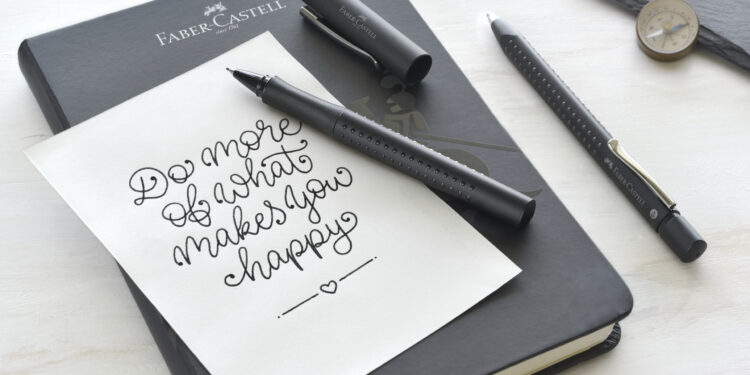 FABER-CASTELL
since 1761
FABER-CASTELL
Do more
of what
makes you
happy
FABER-CASTELL